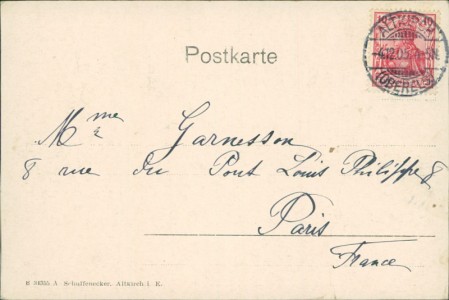 Postkarte
ALTKIRCH
(OBERELS.)
Mme Garnesson
8 rue du Pont Louis Philippe 8
Paris
France
A. Schuffenecker, Altkirch i. E.